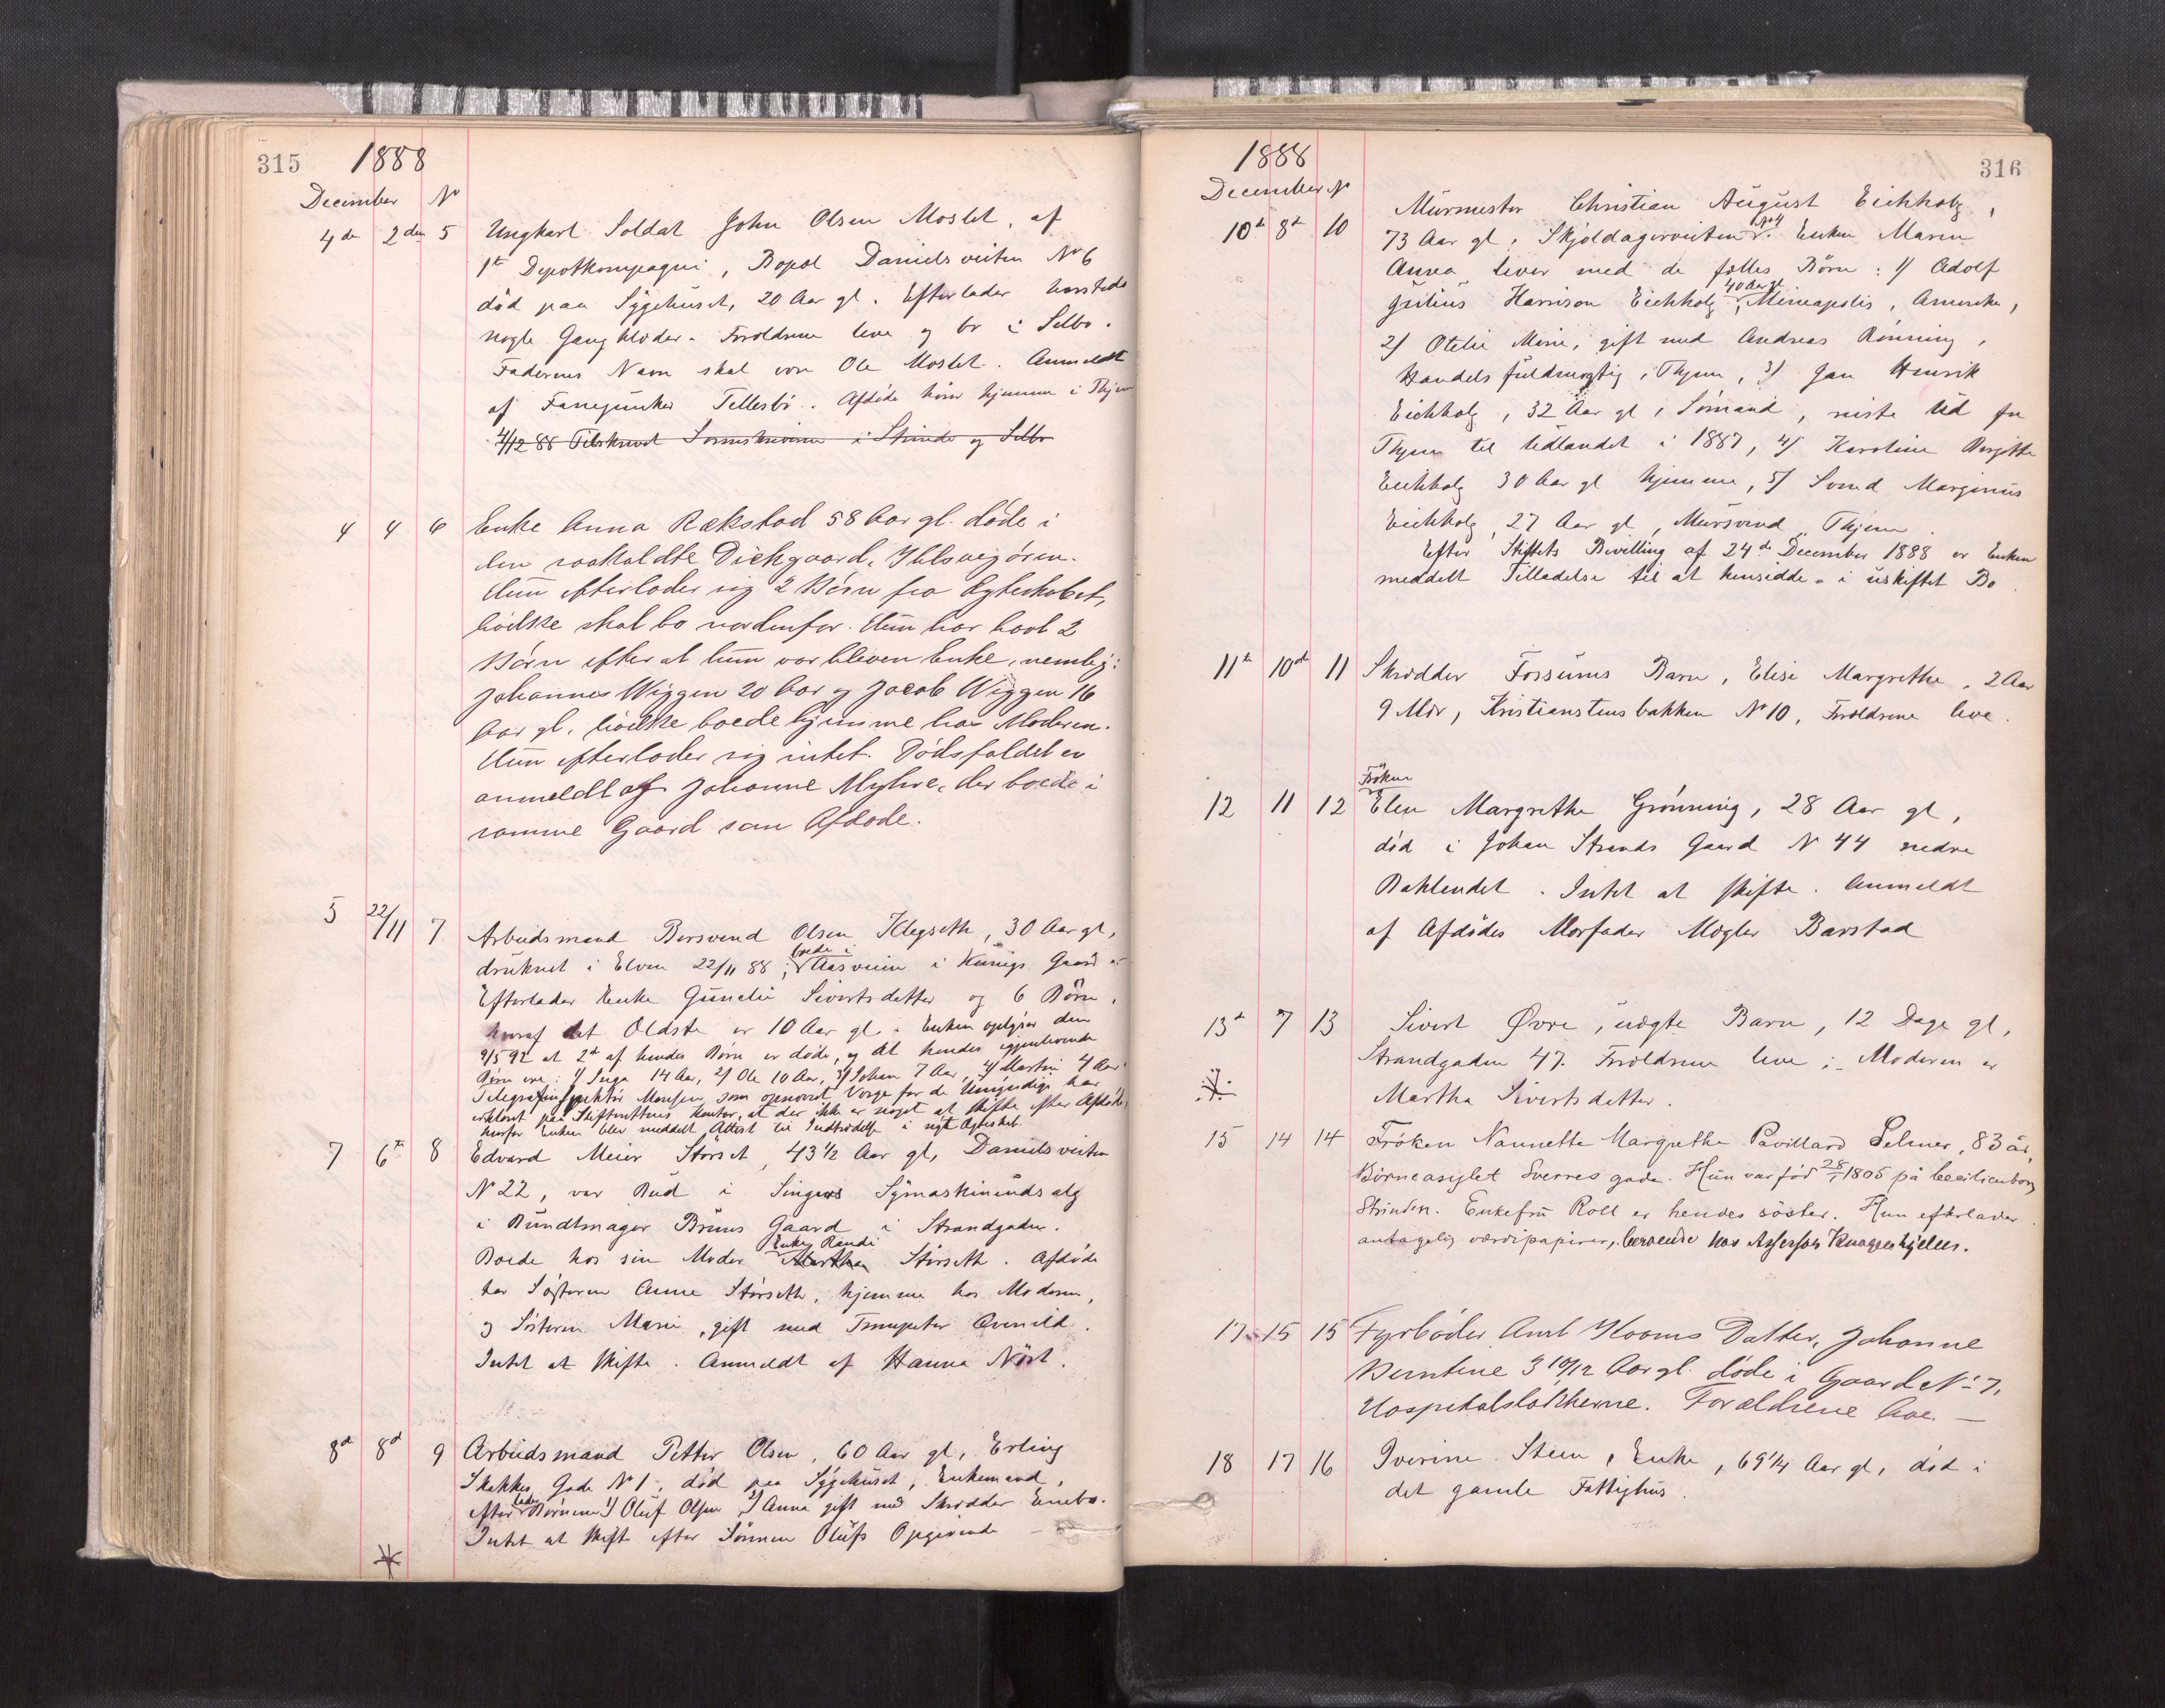 315 1888
December No
4de 2den 5 Ungkarl Soldat John Olsen Moslet, af
1te Depotkompagni, Bopæl Danielsveiten No 6
död paa Sygehuset, 20 Aar gl. Efterlader
nogle Gangklæder. Forældrene leve og bo i Selbo.
Faderens Navn skal være Ole Moslet. Anmeldt
af Fanejunker Tellesbö. Afdöde hjemme i Thjem
4/12 88 Tilskrevet Sorenskriveren i Strinde og Selbo
4 4 6 Enke Anna Rækstad 58 Aar gl. döde i
den saakaldte Dickgaard, Ihlsvejören.
Hun efterlader sig 2 Börn fra Egteskabet,
hvilke skal bo nordenfor. Hun har havt 2
Börn efterat hun var bleven Enke, nemlig:
Johannes Wiggen 20 Aar og Jacob Wiggen 16
Aar gl. hvilke boede hjemme hos Moderen.
Hun efterlader sig intet. Dödsfaldet er
anmeldt af Johanne Myhre, der boede i
samme Gaard som Afdöde.
5 22/11 7 Arbeidsmand Bersvend Olsen Klegseth, 30 Aar gl,
druknet i Elven 22/11 88; boede i Aasveien i Kunigs Gaard
Efterlader Enke Gunelie Sivertsdatter og 6 Börn,
hvoraf det Ældste er 10 Aar gl. Enken oplyser den
9/5 92 at 2de af hendes Börn er döde, og at hendes igjenlevende
Börn ere: 1/ Inga 14 Aar, 2/ Ole 10 Aar, 3/ Johan 7 Aar, 4/ Martin 4 Aar
Telegrafinspektör Monsen, som opnævnt Værge for de Umyndige har
erklæret paa Skifterettens Kontor, at der ikke er noget at skifte efter Afdöde,
hvorfor Enken blev meddelt Attest til Indtrædelse i nyt Ægteskab.
7 6te 8 Edvard Meier Störset, 43 1/2 Aar gl, Danielsveiten
N 22, var Bud i Singers Symaskinudsalg
i Bundtmager Bruns Gaard i Strandgaden.
Boede hos sin Moder Enke Randi Störseth. Afdöde
har Sösteren Anne Störseth, hjemme hos Moderen,
og Sösteren Marie, gift med Trompeter Arnild.
Intet at skifte. Anmeldt af Hanna Nöst.
8d 8d 9 Arbeidsmand Petter Olsen, 60 Aar gl, Erling
Skakkes Gade No 1, död paa Sygehuset, Enkemand,
efterlader Börnene 1/ Oluf Olsen 2/ Anna gift med Skrædder Enebo.
Intet at skifte efter Sönnen Olufs Opgivende
1888 316
December No
10de 8de 10 Murmester Christian August Eichholz,
73 Aar gl, Skjoldagerveiten No 4. Enken Maren
Anna lever med de fælles Börn: 1/ Adolf
Julius Harrison Eichholz, 40 Aar gl, Mineapolis, Amerika,
2/ Otelie Marie, gift med Andreas Rönning,
Handelsfuldmægtig, Thjem, 3/ Jan Henrik
Eichholz, 32 Aar gl, Sömand, reiste ud fra
Thjem til Udlandet i 1887, 4/ Karoline Birgitte
Eichholz 30 Aar gl hjemme, 5/ Svend Marginus
Eichholz, 27 Aar gl, Mursvend, Thjem.
Efter Stiftets Bevilling af 24de December 1888 er Enken
meddelt Tilladelse til at hensidde i uskiftet Bo.
11te 10de 11 Skrædder Fossums Barn, Elise Margrethe, 2 Aar
9 Mdr, Kristianstensbakken No 10, Forældrene leve.
12 11 12 Fröken Elen Margrethe Grönning, 28 Aar gl,
död i Johan Strands Gaard N 44 nedre
Baklandet. Intet at skifte. Anmeldt
af Afdödes Morfader Mægler Barstad
13d 7 13 Sivert Øvre, uægte Barn, 12 Dage gl,
Strandgaden 47. Forældrene leve; Moderen er
Martha Sivertsdatter.
15 14 14 Fröken Nannette Margrethe Pavillard Selmer, 83 år,
Börneasylet Sverres gade. Hun var född 28/1 1805 på Cecilienborg
Strinden. Enkefru Roll er hendes söster. Hun efterlader
antagelig værdipapirer, beroende hos Assessor Knagenhjelm.
17 15 15 Fyrböder Amt Moams Datter, Johanne
Berntine 3 10/12 Aar gl. döde i Gaard No 7,
Hospitalslökkerne. Forældrene leve.
18 17 16 Iverine Steen, Enke, 69 1/4 Aar gl, död i
det gamle Fattighus.